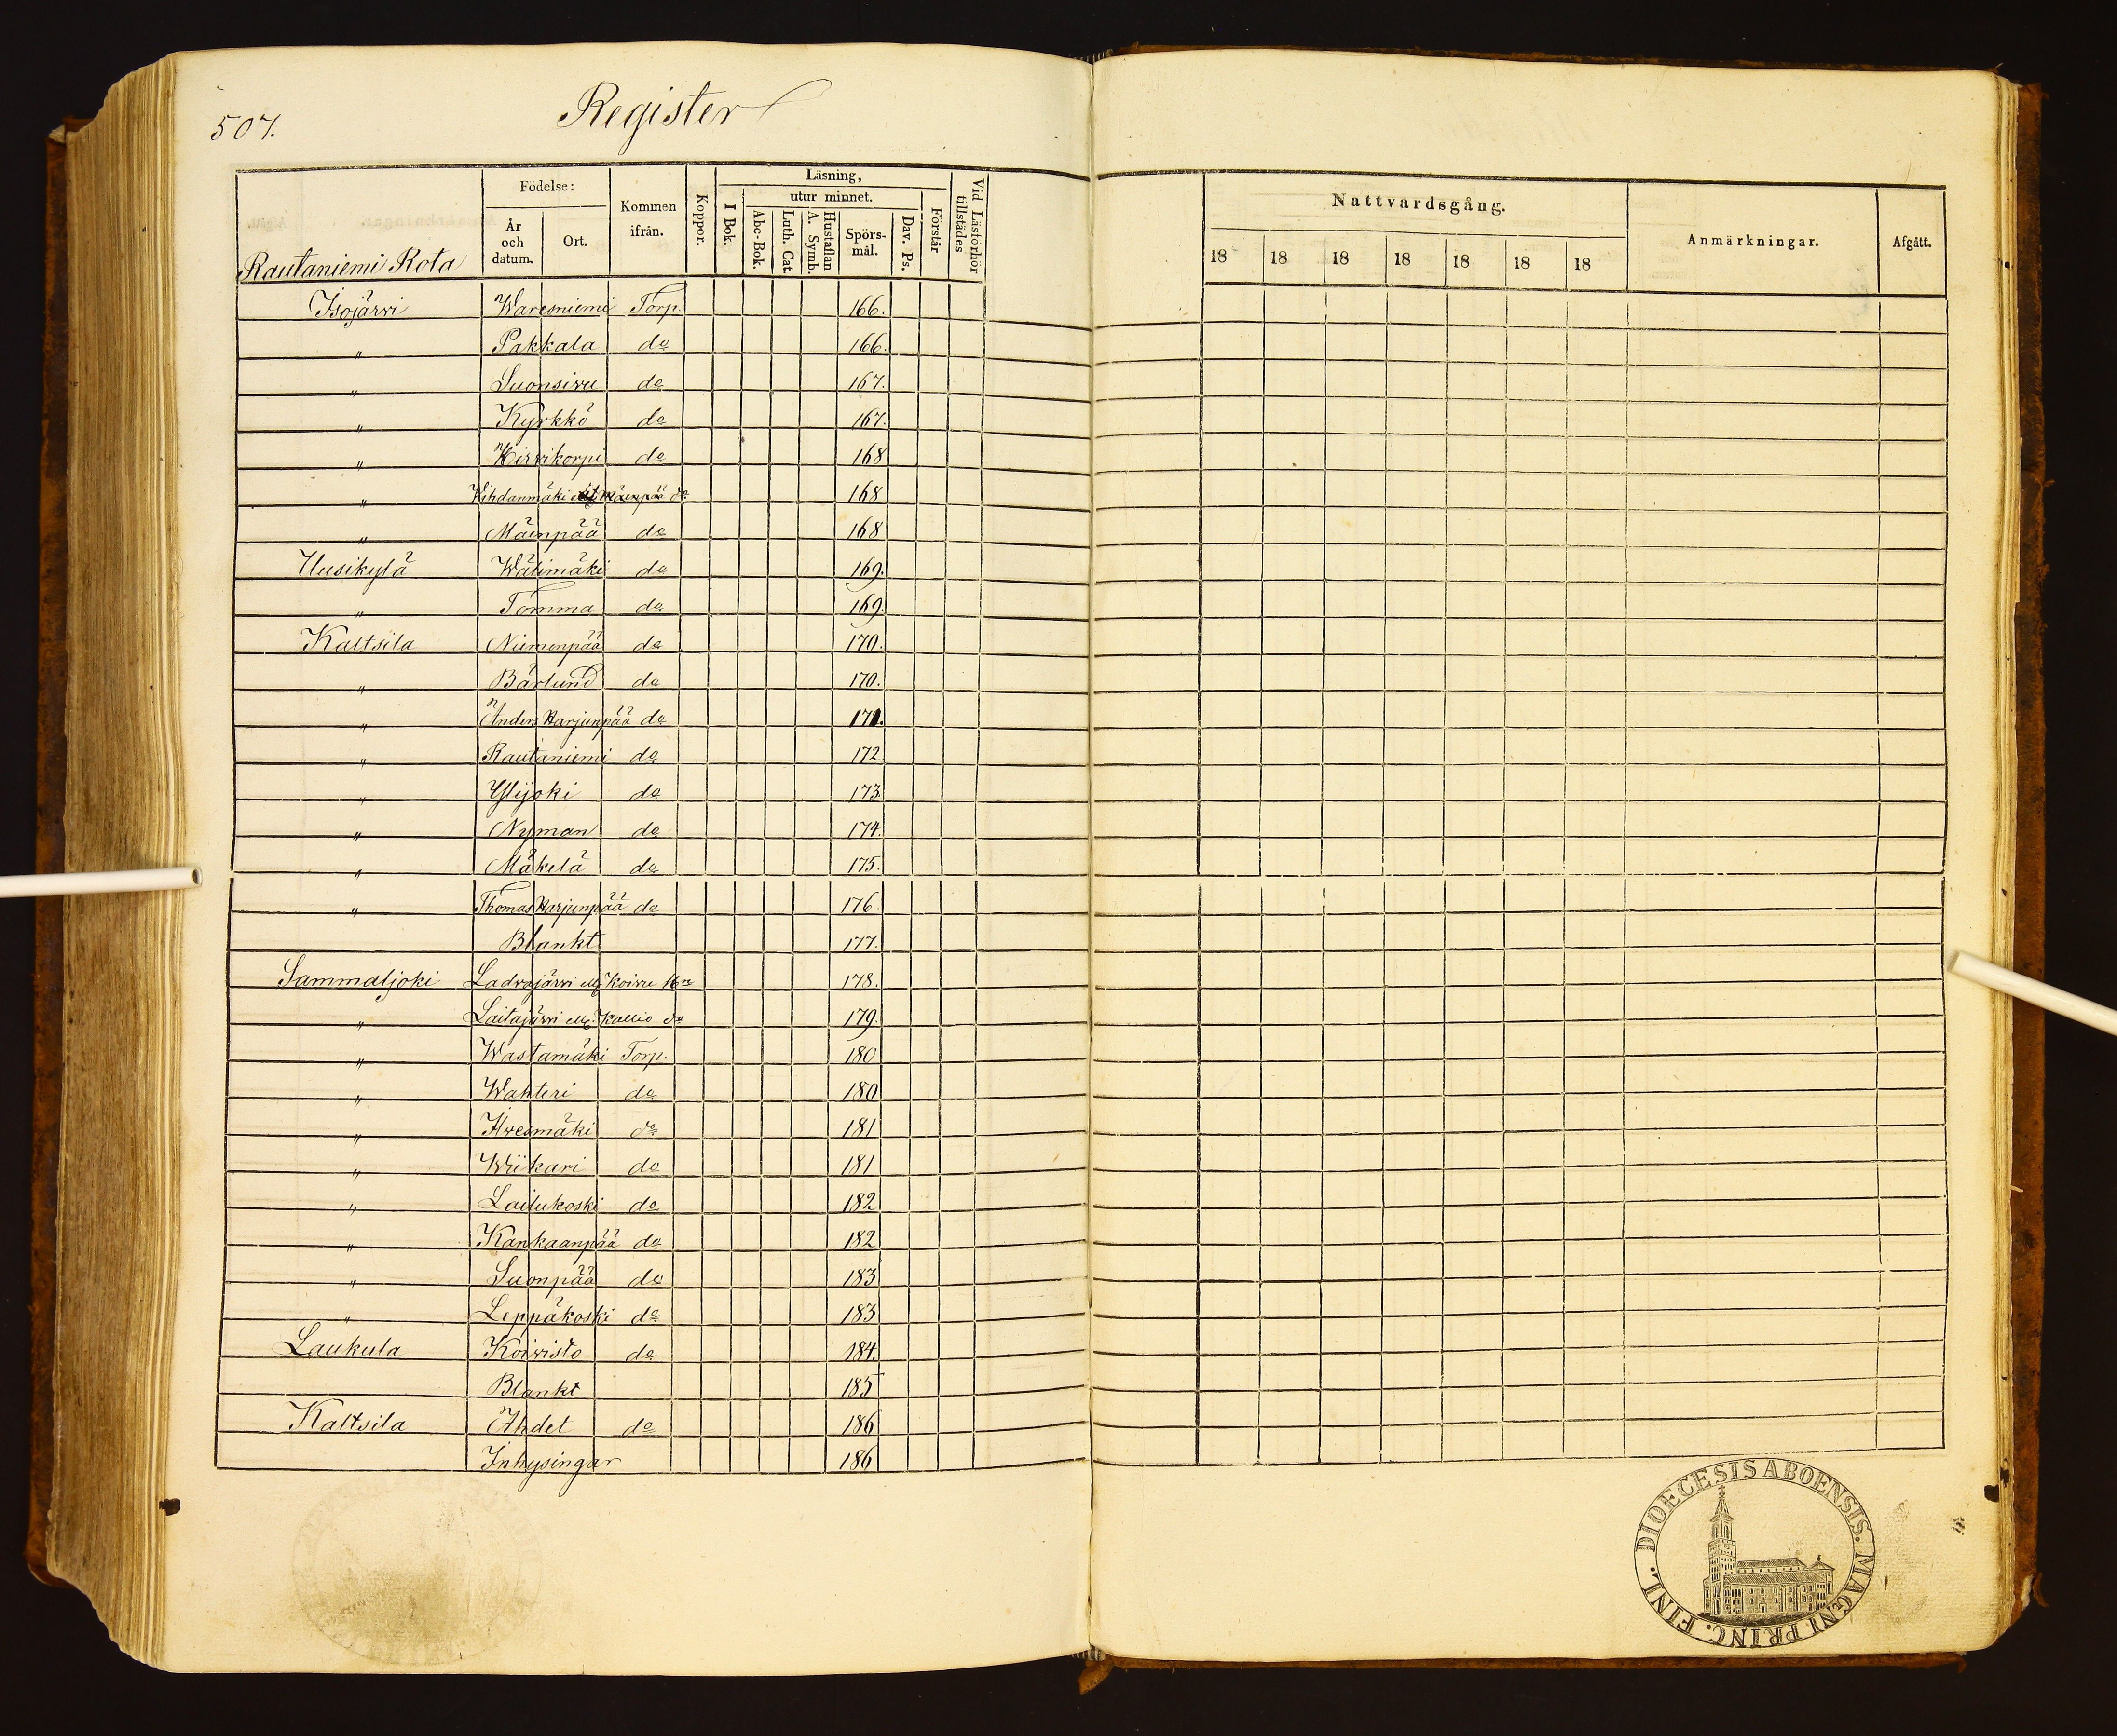 507.
Register
Rautaniemi Rota
Födelse:
År och datum.
Ort.
Kommen ifrån.
Koppor.
Läsning,
I Bok.
utur minnet.
Abc-Bok.
Luth. Cat.
Hustaflan A. Symb.
Spörs-mål.
Dav. Ps.
Förstår
Vid Läsförhör tillstädes
Nattvardsgång.
18 18 18 18 18 18 18
Anmärkningar.
Afgått.
Isojärvi Waresniemi Torp. 166.
" Pakkala do 166.
" Suonsivu do 167.
" Kyrkkö do 167.
" Hirvikorpi do 168
" Wihdanmäki ell. Mäenpää do 168
" Mäenpää do 168
Uusikylä Wälimäki do 169.
" Tomma do 169.
Kaltsila Niemenpää do 170.
" Bärlund do 170.
" Anders Harjunpää do 171.
" Rautaniemi do 172
" Ylijoki do 173.
" Nyman do 174.
" Mäkelä do 175.
" Thomas Harjunpää do 176.
Blankt 177.
Sammaljoki Ladvajärvi ell. Koivu 178.
" Laitajärvi ell. Kallio do 179.
" Wastamäki Torp. 180
" Wahteri do 180
" Ilvesmäki do 181
" Wiikari do 181
" Lailukoski do 182
" Kankaanpää do 182
" Suonpää do 183
" Leppäkoski do 183
Laukula Koivisto do 184.
Blankt 185
Kaltsila Ahdet do 186
Inhysingar 186
DIOECESIS ABOENSIS. MAGNI PRINC. FINL.